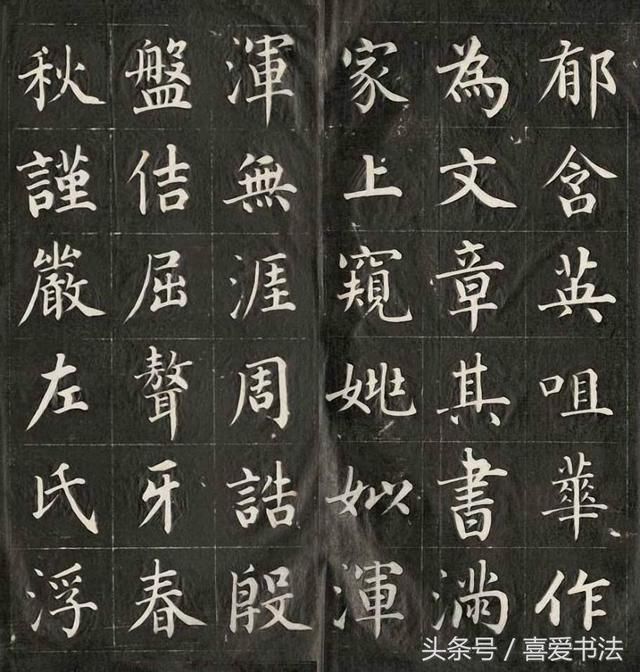 郁含英咀華作
為文章其書滿
家上窺姚姒渾
渾無涯周誥殷
盤佶屈聱牙春
秋謹嚴左氏浮
头条号 / 喜爱书法